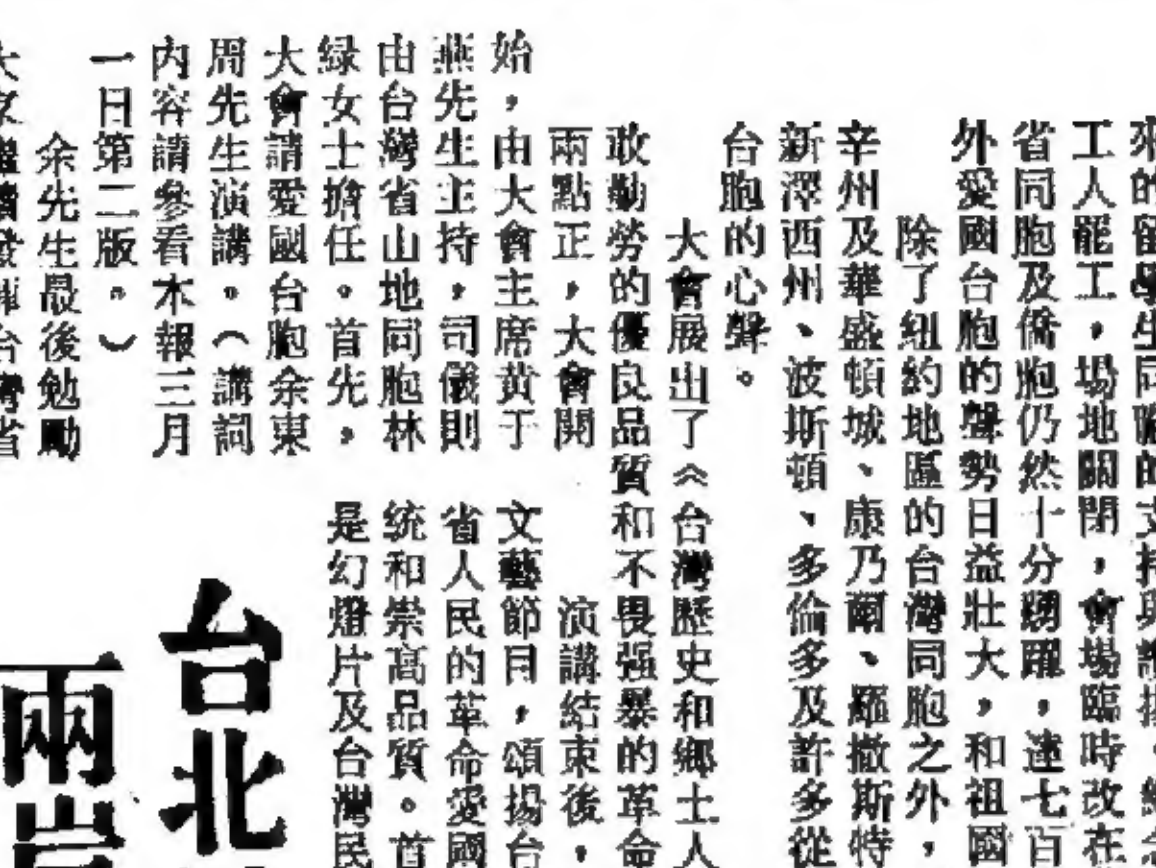 來的留學生同胞的支持與
工人罷工,場地關閉,會場臨時改在
省同胞及僑胞仍然十分踴躍,達七百
外愛國台胞的聲勢日益壯大,和祖國
除了紐約地區的台灣同胞之外,
辛州及華盛頓城、康乃爾、羅撒斯特
新澤西州、波斯頓、多倫多及許多從
台胞的心聲。
大會展出了《台灣歷史和鄉土人
敢勤勞的優良品質和不畏强暴的革命
兩點正,大會開
始,由大會主席黃于
燕先生主持,司儀則
由台灣省山地同胞林
緑女士擔任。首先,
大會請愛國台胞余東
周先生演講。(講詞
內容請參看本報三月
一日第二版。)
余先生最後勉勵
大家繼續發揮台灣省
演講結束後,
文藝節目,頌揚台
省人民的革命愛國
統和崇高品質。首
是幻燈片及台灣民
台北
兩岸